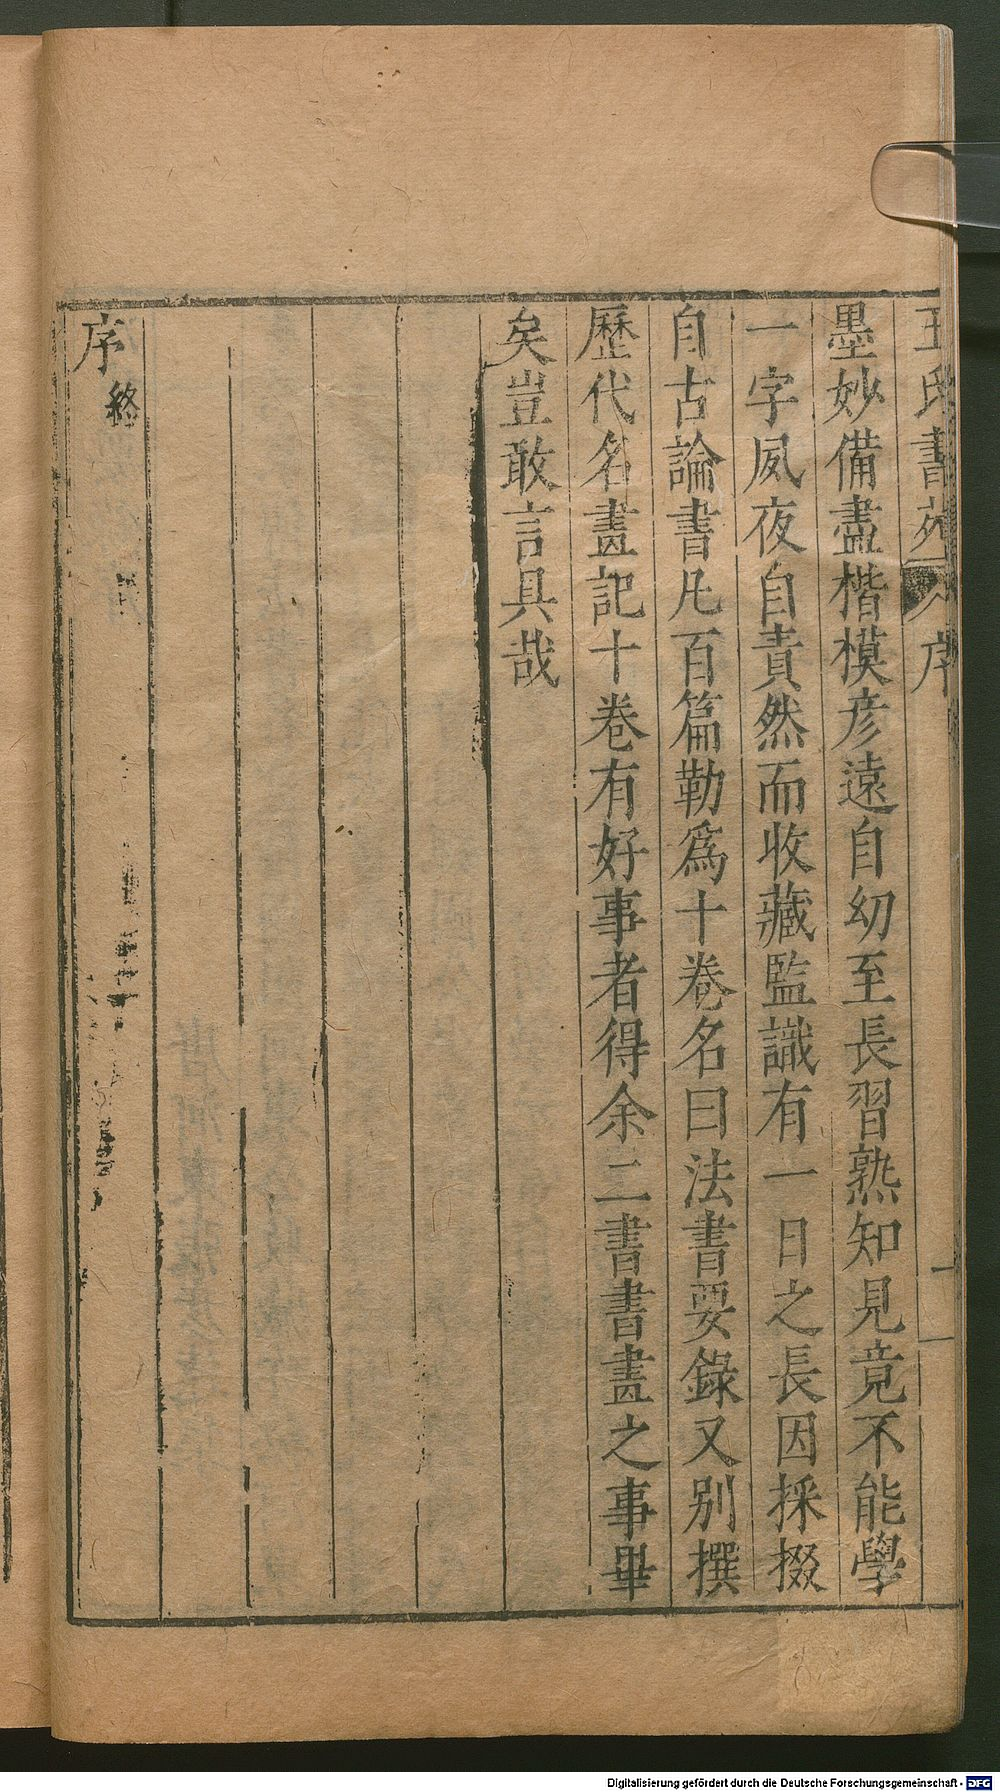 王氏書苑 序 二
墨妙備盡楷模彦遠自幼至長習熟知見竟不能學
一字夙夜自責然而收藏監識有一日之長因採掇
自古論書凡百篇勒爲十卷名曰法書要錄又别撰
歷代名畫記十卷有好事者得余二書書畫之事畢
矣豈敢言具哉
序終
Digitalisierung gefördert durch die Deutsche Forschungsgemeinschaft - DFG